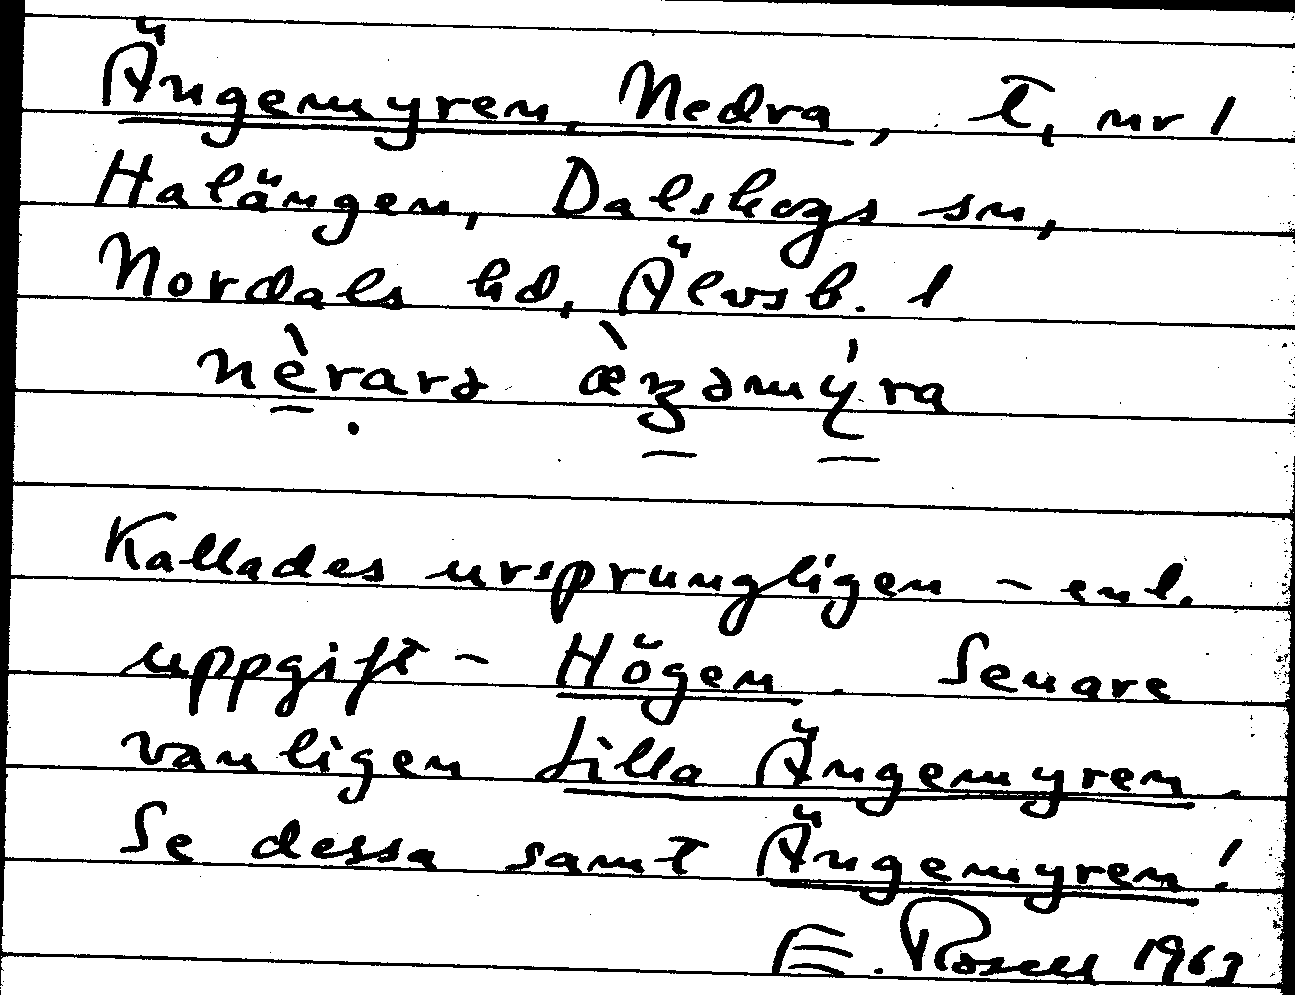 Ängemyren, Nedra, T, nr 1
Halängen, Dalskogs sn,
Nordals hd, Älvsb. l
nèrarə æ̀ʒəmýra
Kallades ursprungligen – enl.
uppgift – Högen. Senare
vanligen Lilla Ängemyren.
Se dessa samt Ängemyren!
E. Rosell 1963